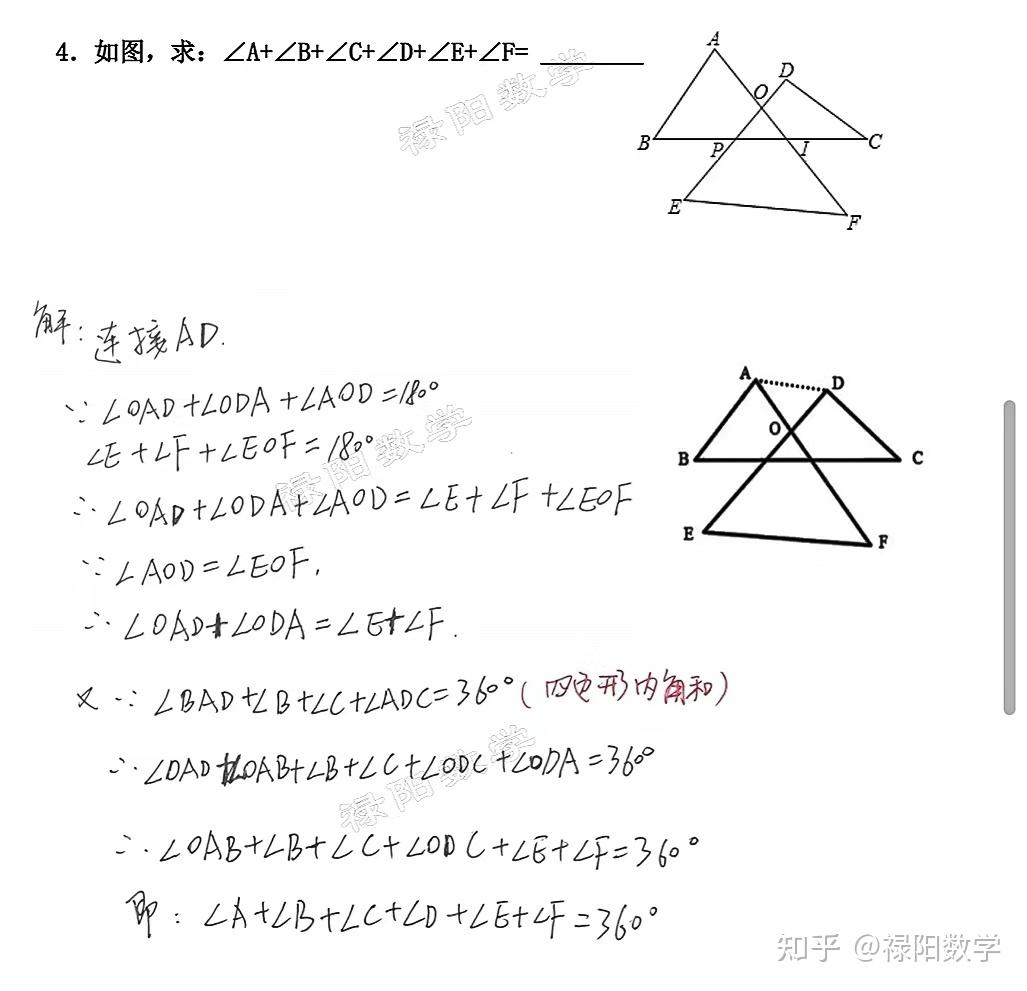 4. 如图，求：∠A+∠B+∠C+∠D+∠E+∠F= ________
禄阳数学
A
D
O
B
P
I
C
E
F
解：连接AD.
∵ ∠OAD+∠ODA+∠AOD=180°
∠E+∠F+∠EOF=180°
禄阳数学
∴ ∠OAD+∠ODA+∠AOD=∠E+∠F+∠EOF
∵ ∠AOD=∠EOF,
∴ ∠OAD+∠ODA=∠E+∠F.
A
D
O
B
C
E
F
又∵ ∠BAD+∠B+∠C+∠ADC=360°(四边形内角和)
∴ ∠OAD+∠OAB+∠B+∠C+∠ODC+∠ODA=360°
禄阳数学
∴ ∠OAB+∠B+∠C+∠ODC+∠E+∠F=360°
即：∠A+∠B+∠C+∠D+∠E+∠F=360°
知乎 @禄阳数学